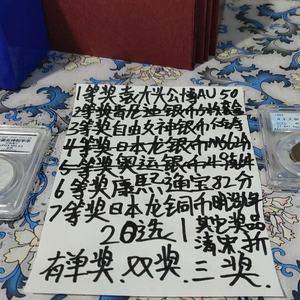 1等奖袁大头公博AU50
2等奖肯尼迪银币
3等奖自由女神银币
4等奖日本龙银币MS62分
5等奖奥运银币
6等奖康熙通宝82分
7等奖日本龙铜币明治年
20选1
其它奖品
清宋 折
有单奖.双奖.三奖.